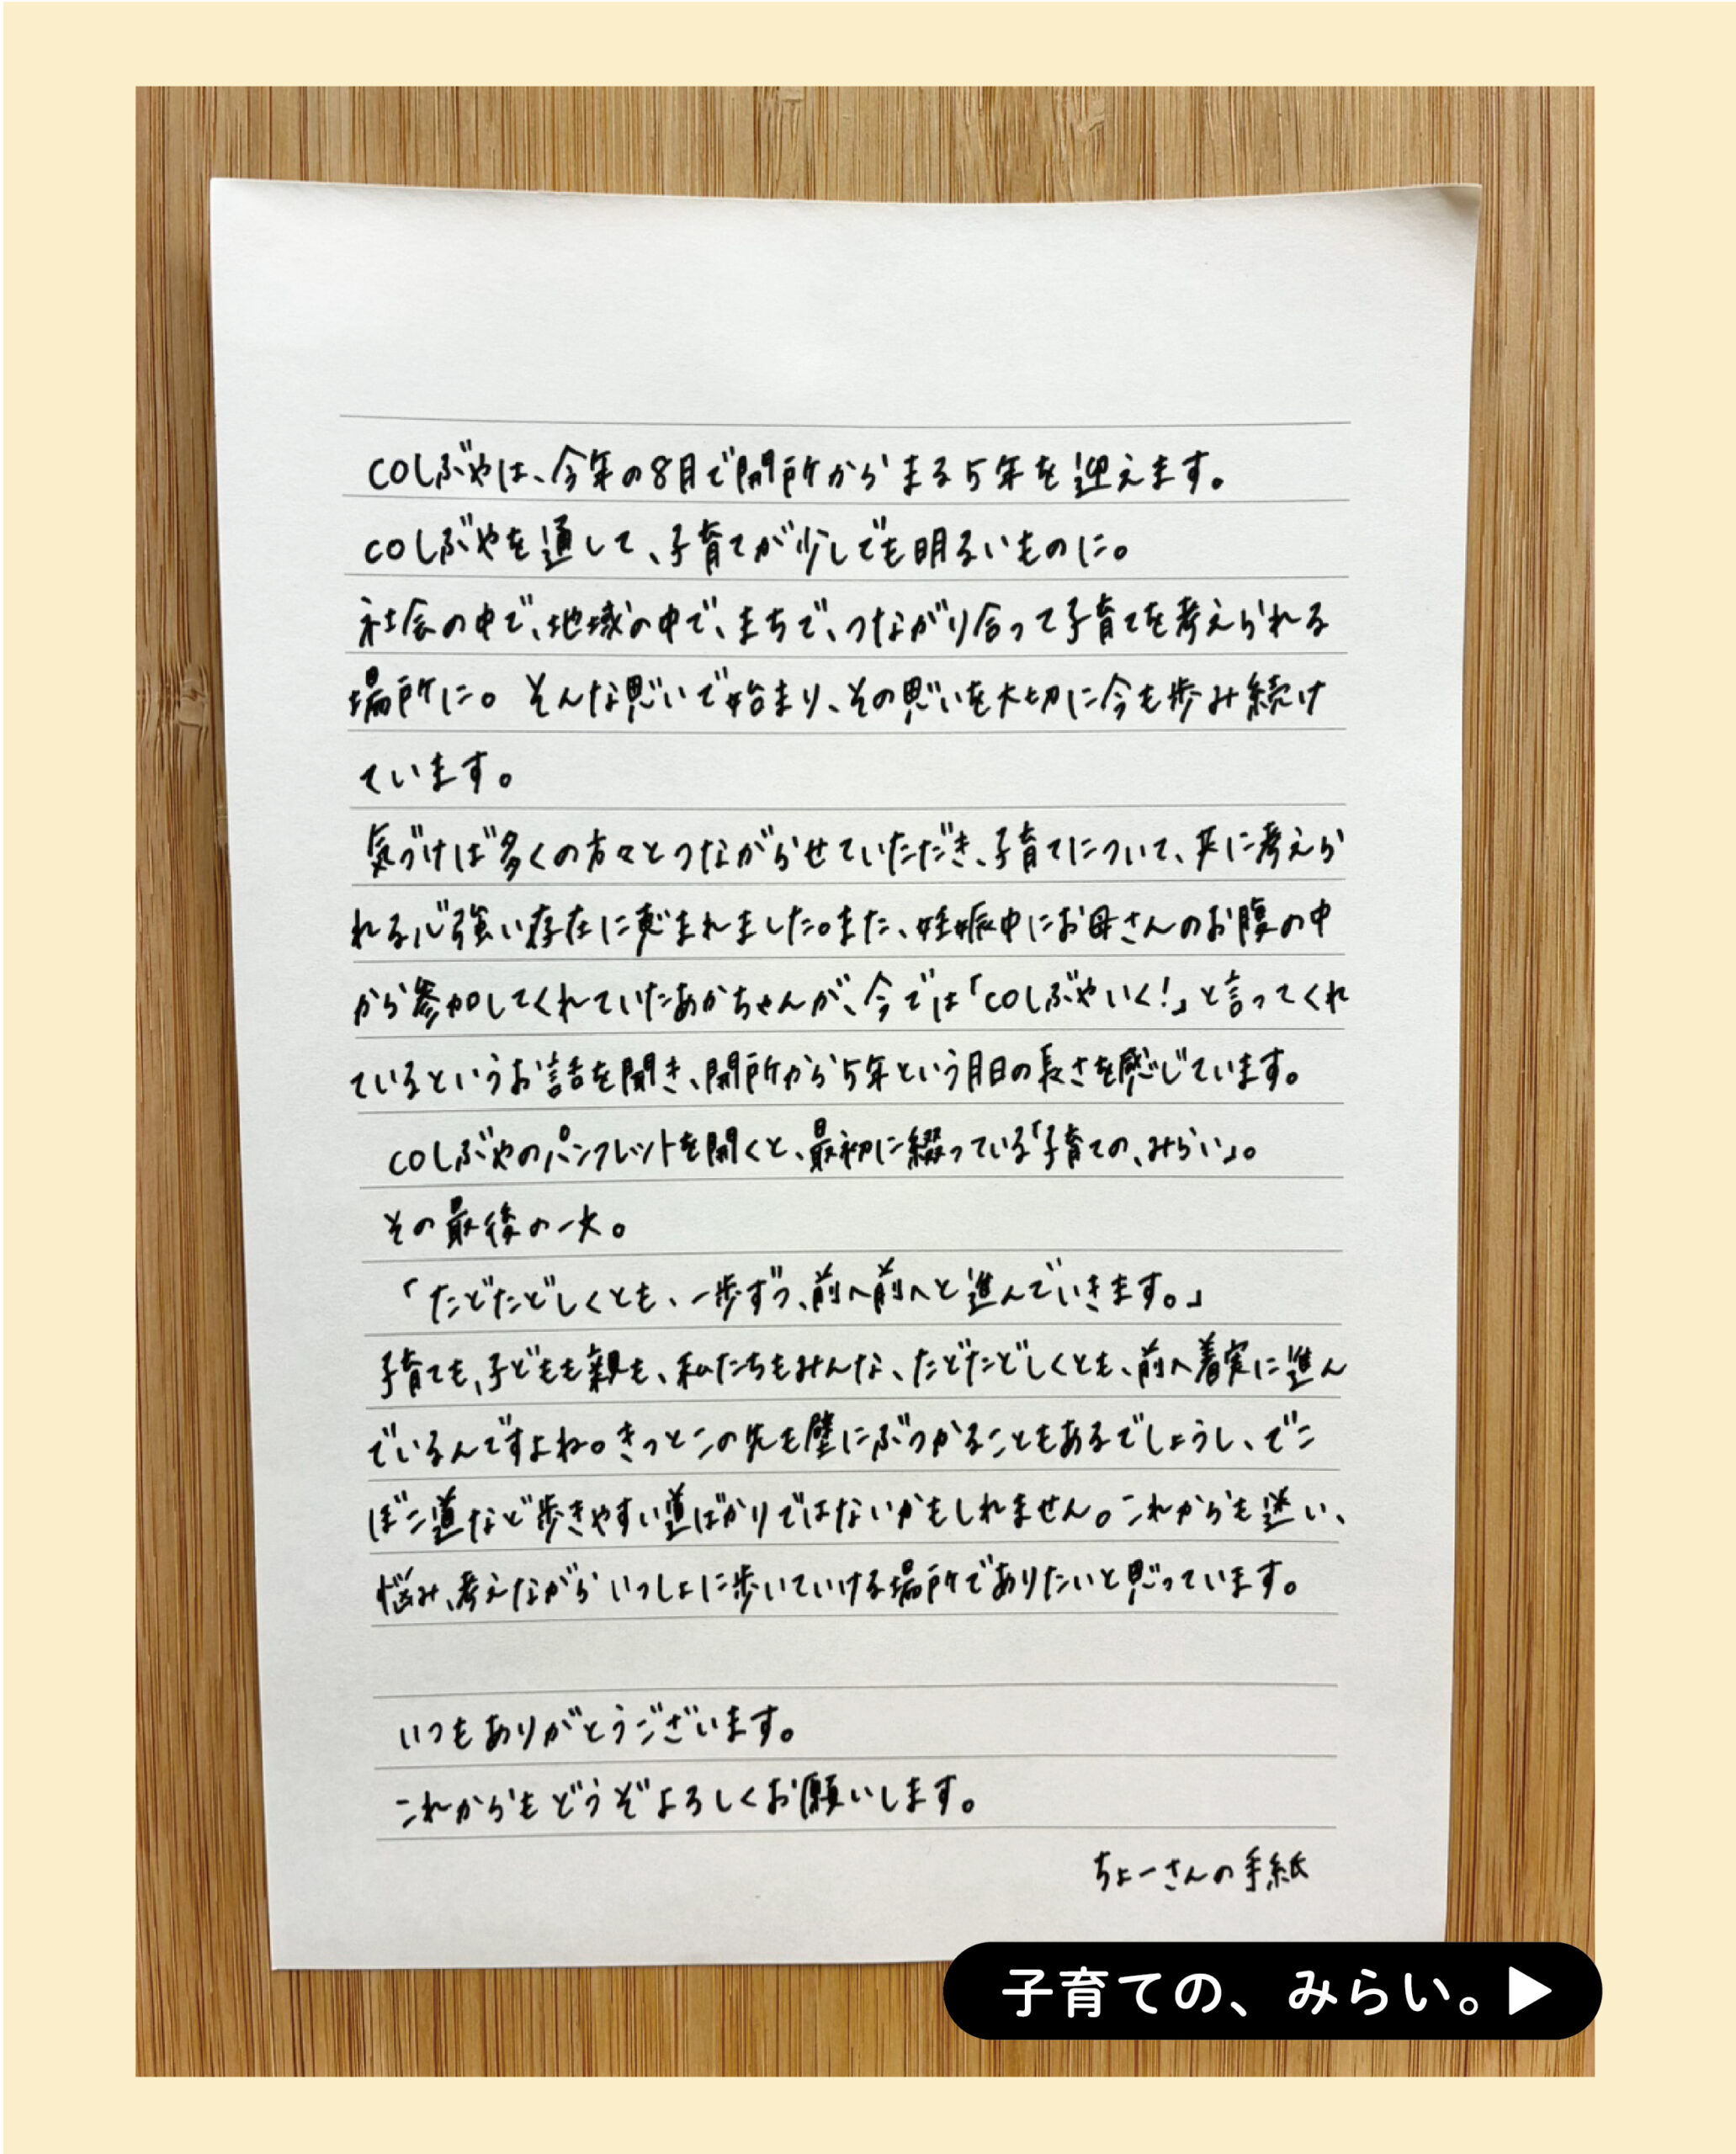 coしぶやは、今年の8月で開所からまる5年を迎えます。
coしぶやを通して、子育てが少しでも明るいものに。
社会の中で、地域の中で、まちで、つながり合って子育てを考えられる
場所に。そんな思いで始まり、その思いを大切に今も歩み続け
ています。
気づけば多くの方々とつながらせていただき、子育てについて、共に考えら
れる心強い存在に恵まれました。また、妊娠中にお母さんのお腹の中
から参加してくれていたあかちゃんが、今では「coしぶやいく!」と言ってくれ
ているというお話を聞き、開所から5年という月日の長さを感じています。
coしぶやのパンフレットを開くと、最初に綴っている「子育ての、みらい」。
その最後の一文。
「たどたどしくとも、一歩ずつ、前へ前へと進んでいきます。」
子育ても、子どもも親も、私たちもみんな、たどたどしくとも、前へ着実に進ん
でいるんですよね。きっとこの先も壁にぶつかることもあるでしょうし、でこ
ぼこ道など歩きやすい道ばかりではないかもしれません。これからも迷い、
悩み、考えながらいっしょに歩いていける場所でありたいと思っています。
いつもありがとうございます。
これからもどうぞよろしくお願いします。
ちょーさんの手紙
子育ての、みらい。▶